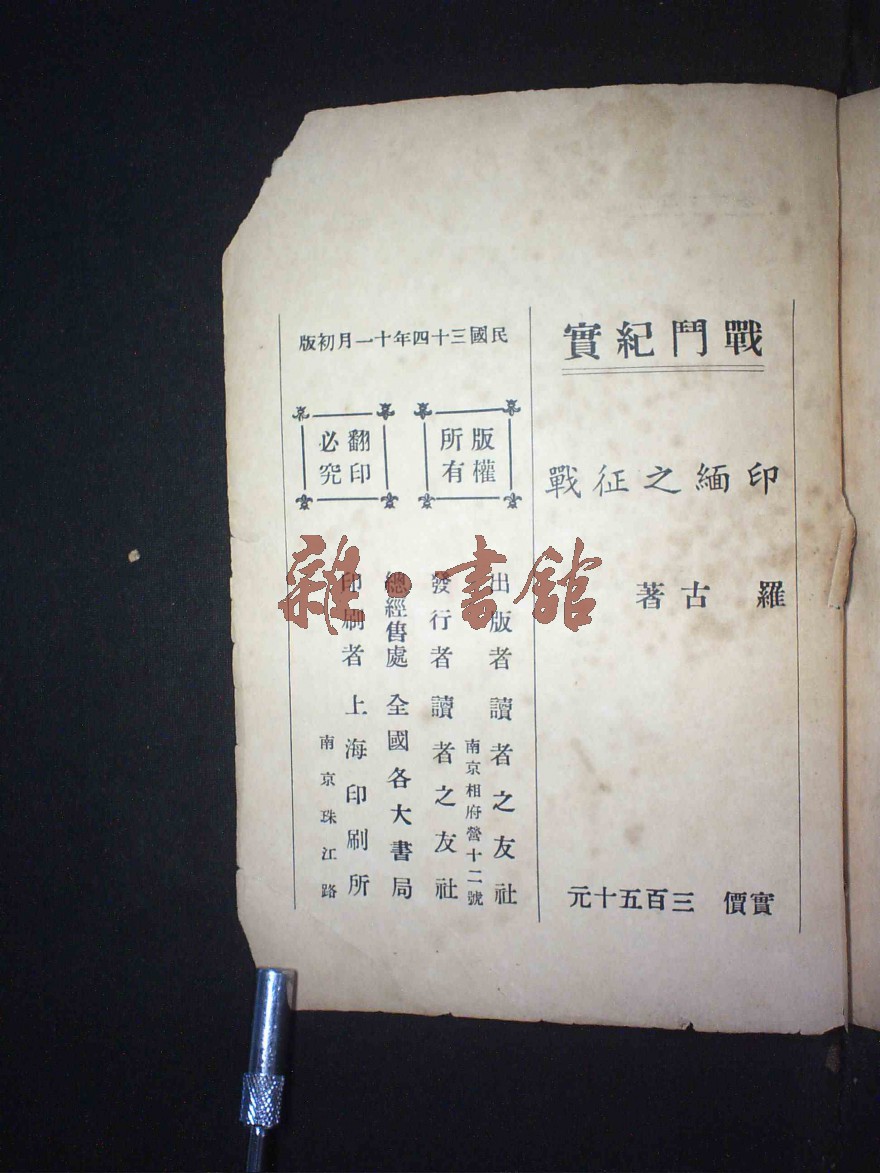 戰鬥紀實
印緬之征戰
羅古著
實價 三百五十元
民國三十四年十一月初版
版權所有
翻印必究
出版者 讀者之友社
南京相府營十二號
發行者 讀者之友社
總經售處 全國各大書局
印刷者 上海印刷所
南京珠江路
雜·書館